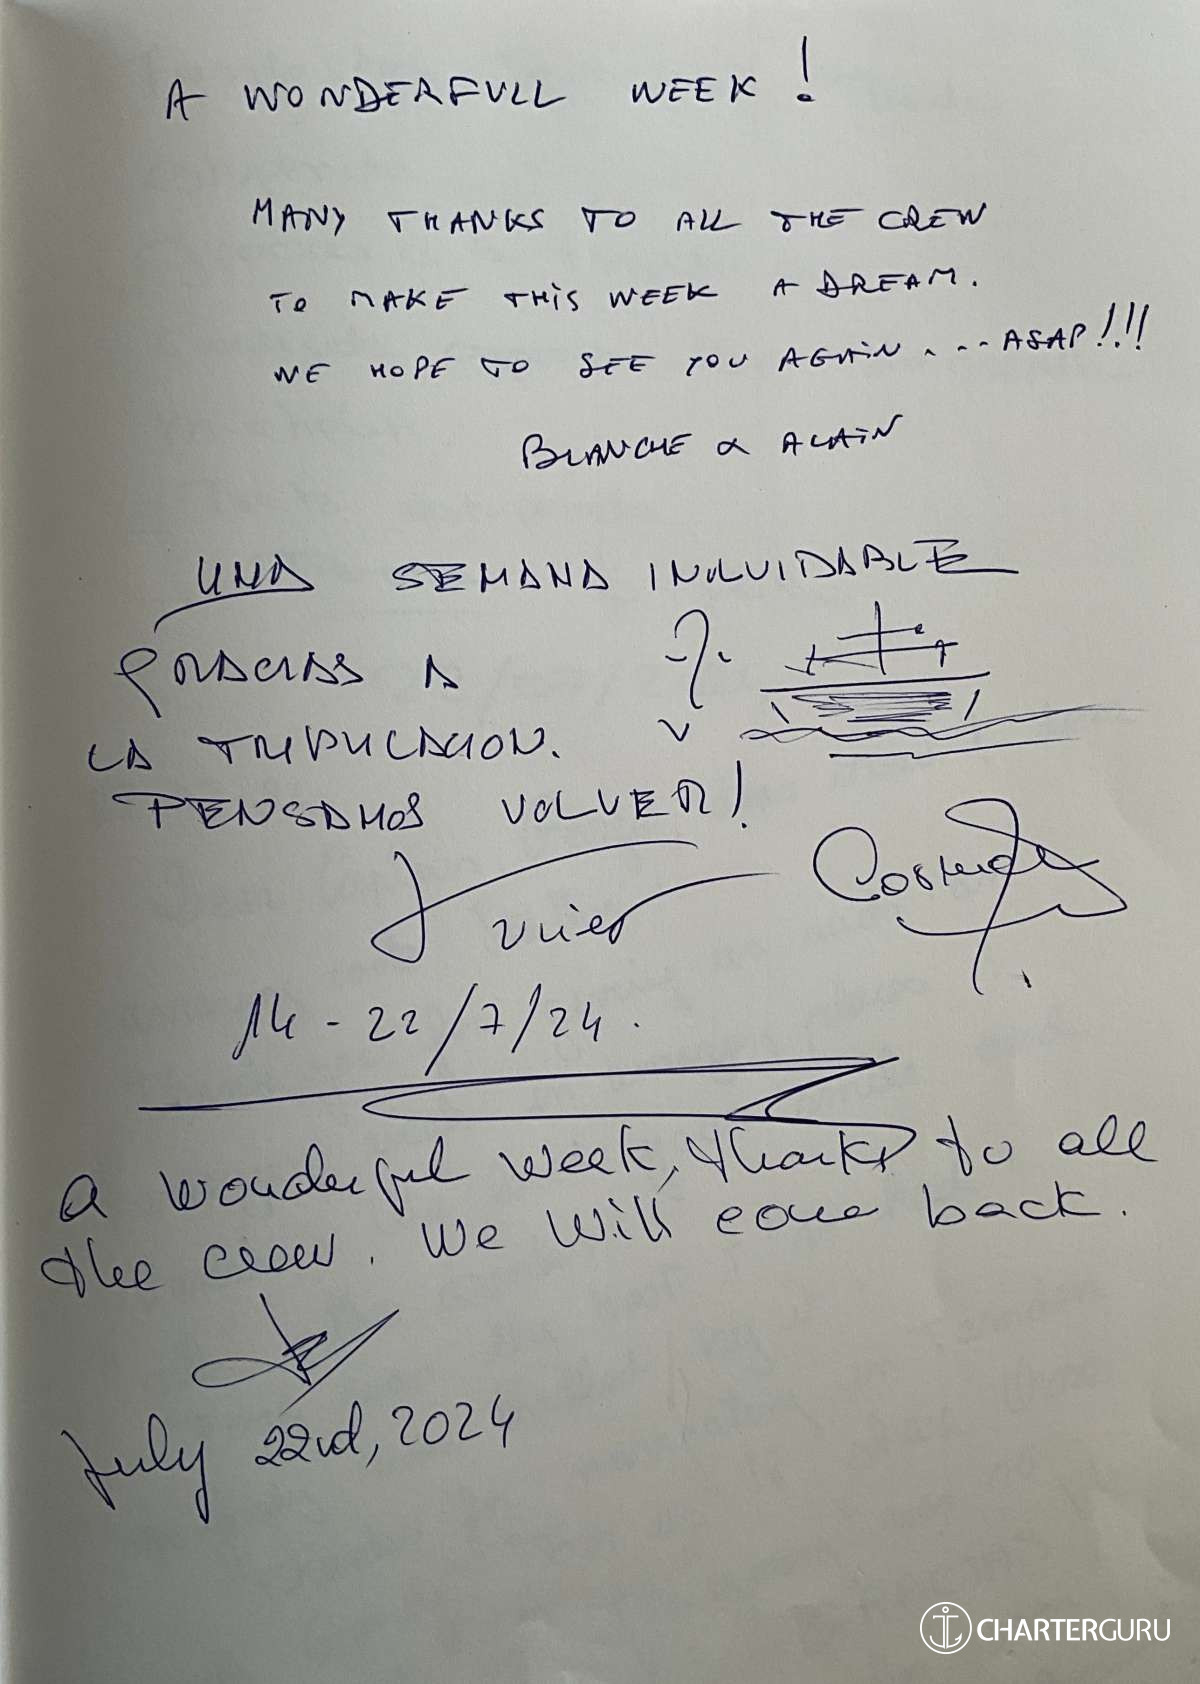 A WONDERFULL WEEK!
MANY THANKS TO ALL THE CREW
TO MAKE THIS WEEK A DREAM.
WE HOPE TO SEE YOU AGAIN....ASAP!!!!
BLANCHE & ALAIN
UNA SEMANA INOLVIDABLE
GRACIAS A
LA TRIPULACION.
PENSAMOS VOLVER!
14-22/7/24.
A wonderful week, thanks to all
the crew. We will come back.
July 22nd, 2024
CHARTERGURU